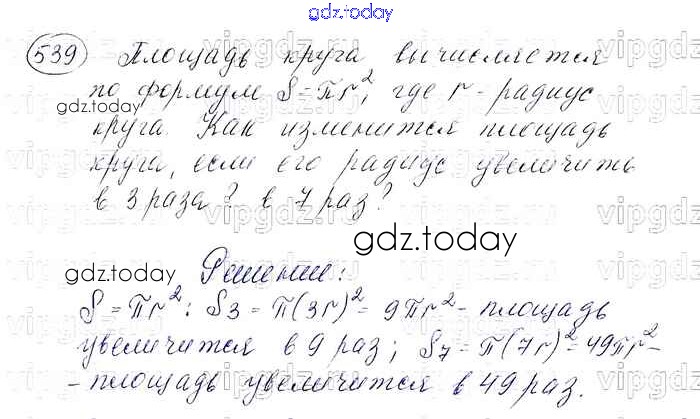 gdz.today
539 Площадь круга вычисляется
по формуле S=πr², где r - радиус
gdz.today
круга. Как изменится площадь
круга, если его радиус увеличить
в 3 раза? в 7 раз?
gdz.today
gdz.today
Решение:
S = πr²; S₃ = π(3r)² = 9πr² - площадь
увеличится в 9 раз; S₇ = π(7r)² = 49πr² -
- площадь увеличится в 49 раз.